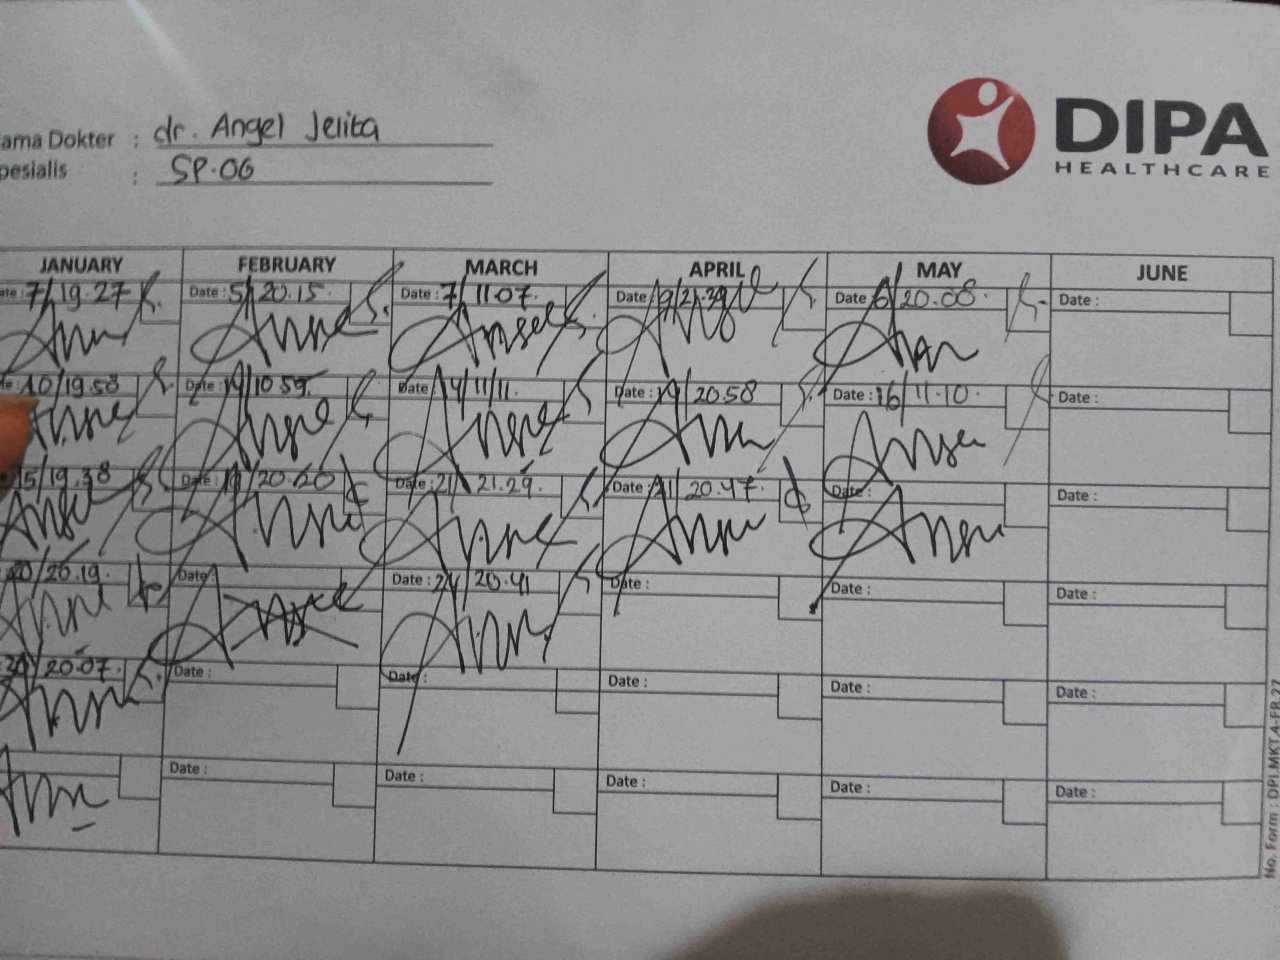 DIPA
HEALTHCARE
ama Dokter : dr. Angel Jelita
pesialis : SP.OG
JANUARY FEBRUARY MARCH APRIL MAY JUNE
ate: 7/19.27 Date: 5/20.15 Date: 7/11.07 Date: 9/21.39 Date: 6/20.08 Date:
te: 10/19.58 Date: 10.59 Date: 14/11/11 Date: 19/20.58 Date: 16/11.10 Date:
15/19.38 Date: 20.20 Date: 21/21.29 Date: 21/20.47 Date: Date:
20/20.19 Date: Date: 24/20.41 Date: Date: Date:
20.07 Date: Date: Date: Date: Date:
Date: Date: Date: Date: Date:
No. Form : DPI.MKT.4-FR.27